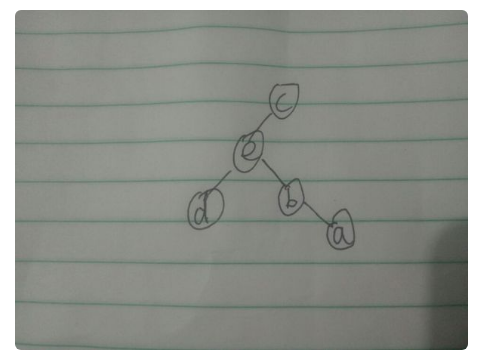 c
e
d b
a